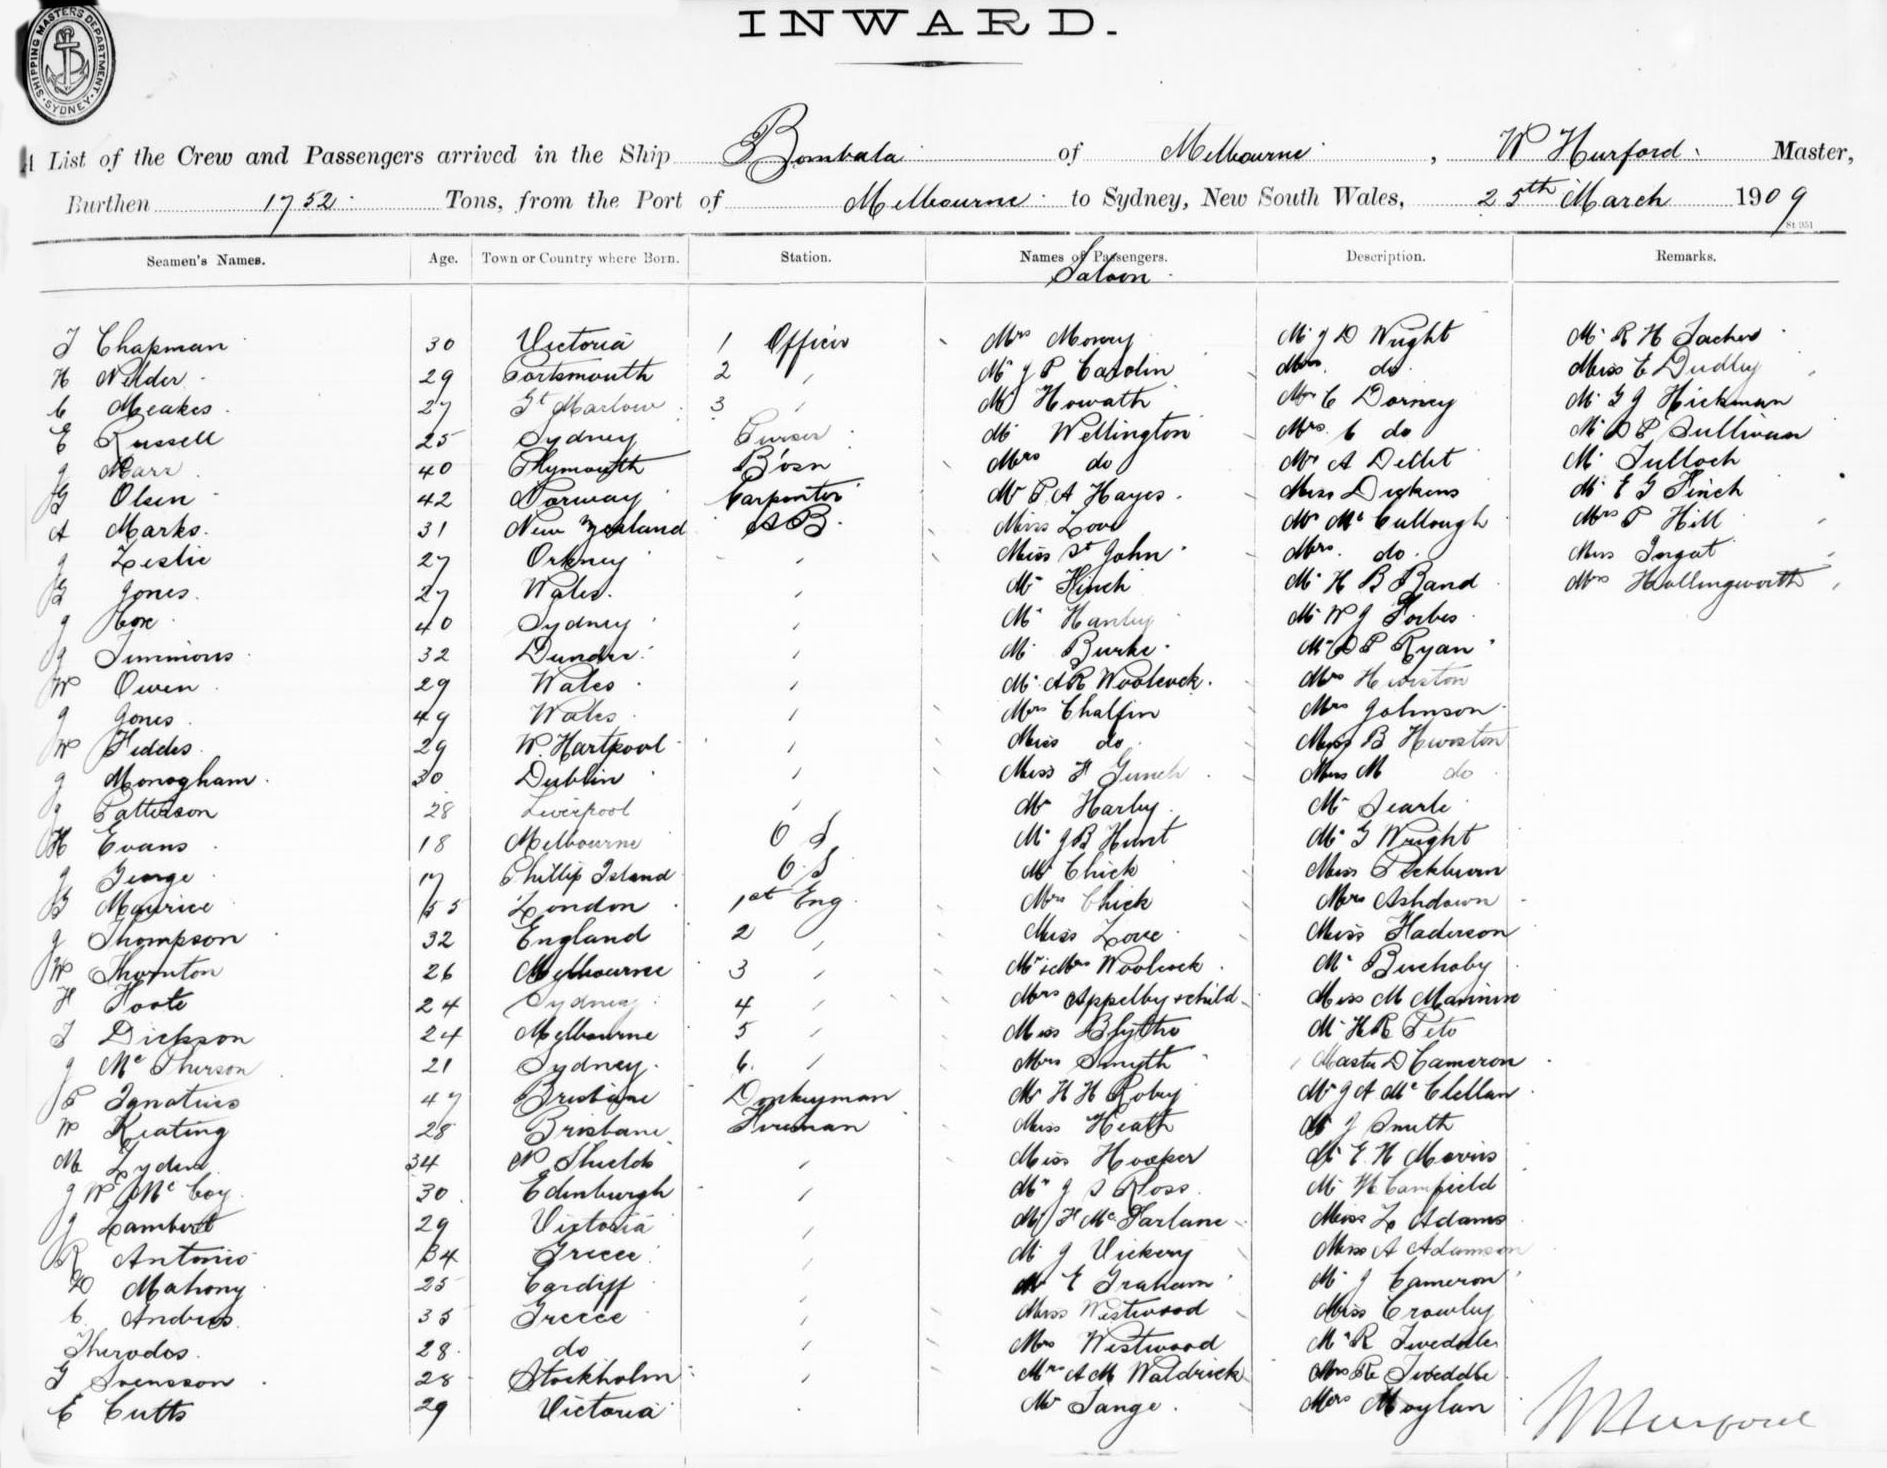 INWARD.
SHIPPING MASTERS DEPARTMENT SYDNEY
A List of the Crew and Passengers arrived in the Ship Bombala of Melbourne, W Hurford Master,
Burthen 1752 Tons, from the Port of Melbourne to Sydney, New South Wales, 25th March 1909
St 951
Seamen's Names. Age. Town or Country where Born. Station. Names of Passengers. Description. Remarks.
Saloon
Chapman 30 Victoria 1 Officer Mrs Mr J D Wright Mr R H
H Nelder 29 Portsmouth 2 " Mr J P Carolin Mrs do Miss E Dudley
C Meakes 27 Gt Marlow 3 " Mr Howath Mr C Dorney Mr G J Hickman
E Russell 25 Sydney Purser Mr Wellington Mrs C do Mr D P Sullivan
J Marr 40 Plymouth B'osn Mrs do Mr A Mr Tulloch
G Olsen 42 Norway Carpenter Mr P A Hayes Miss Dickens Mr E G Finch
A Marks 31 New Zealand A B Miss Love Mr McCullough Mrs P Hill
J Leslie 27 Orkney " Miss St John Mrs do Miss
G Jones 27 Wales " Mr Finch Mr H B Band Mrs Hollingworth
J 40 Sydney " Mr Hanley Mr W J Forbes
J Simmons 32 Dundee " Mr Burke Mr D P Ryan
W Owen 29 Wales " Mr A R Woolcock Mrs
J Jones 49 Wales " Mrs Chalfin Mrs Johnson
W Fiddes 29 W. Hartpool " Miss do Miss B
J Monogham 30 Dublin " Miss F Miss M do
J Patterson 28 Liverpool " Mr Harby Mr Searle
H Evans 18 Melbourne O S Mr J B Hunt Mr G Wright
J George 17 Phillip Island O S Mr Chick Miss Peckburn
G Maurice 55 London 1st Eng Mrs Chick Mrs Ashdown
J Thompson 32 England 2 " Miss Love Miss Haderson
W Thornton 26 Melbourne 3 " Mr & Mrs Woolcock Mr
H Foote 24 Sydney 4 " Mrs Appelby & child Miss M
Dickson 24 Melbourne 5 " Miss Blythe Mr H R Peto
J McPherson 21 Sydney 6 " Mrs Smyth Master D Cameron
P Ignatius 47 Brisbane Donkeyman Mr H H Roby Mr J A McClellan
W Keating 28 Brisbane Fireman Miss Heath Mr J Smith
M 34 N Shields " Miss Hooper Mr E H Morris
J W McCoy 30 Edinburgh " Mr J S Ross Mr H Camfield
J Lambert 29 Victoria " Mr F McFarlane Miss L Adams
R Antonio 34 Greece " Mr J Vickery Miss A Adamson
D Mahony 25 Cardiff " Mr E Graham Mr J Cameron
C Andreas 35 Greece " Miss Westwood Miss Crowley
Therodos 28 do " Mrs Westwood Mr R Tweddle
G Svensson 28 Stockholm " Mrs A M Waldrick Mrs R Tweddle
E Cutts 29 Victoria Mr Tange Mrs Moylan
W Hurford